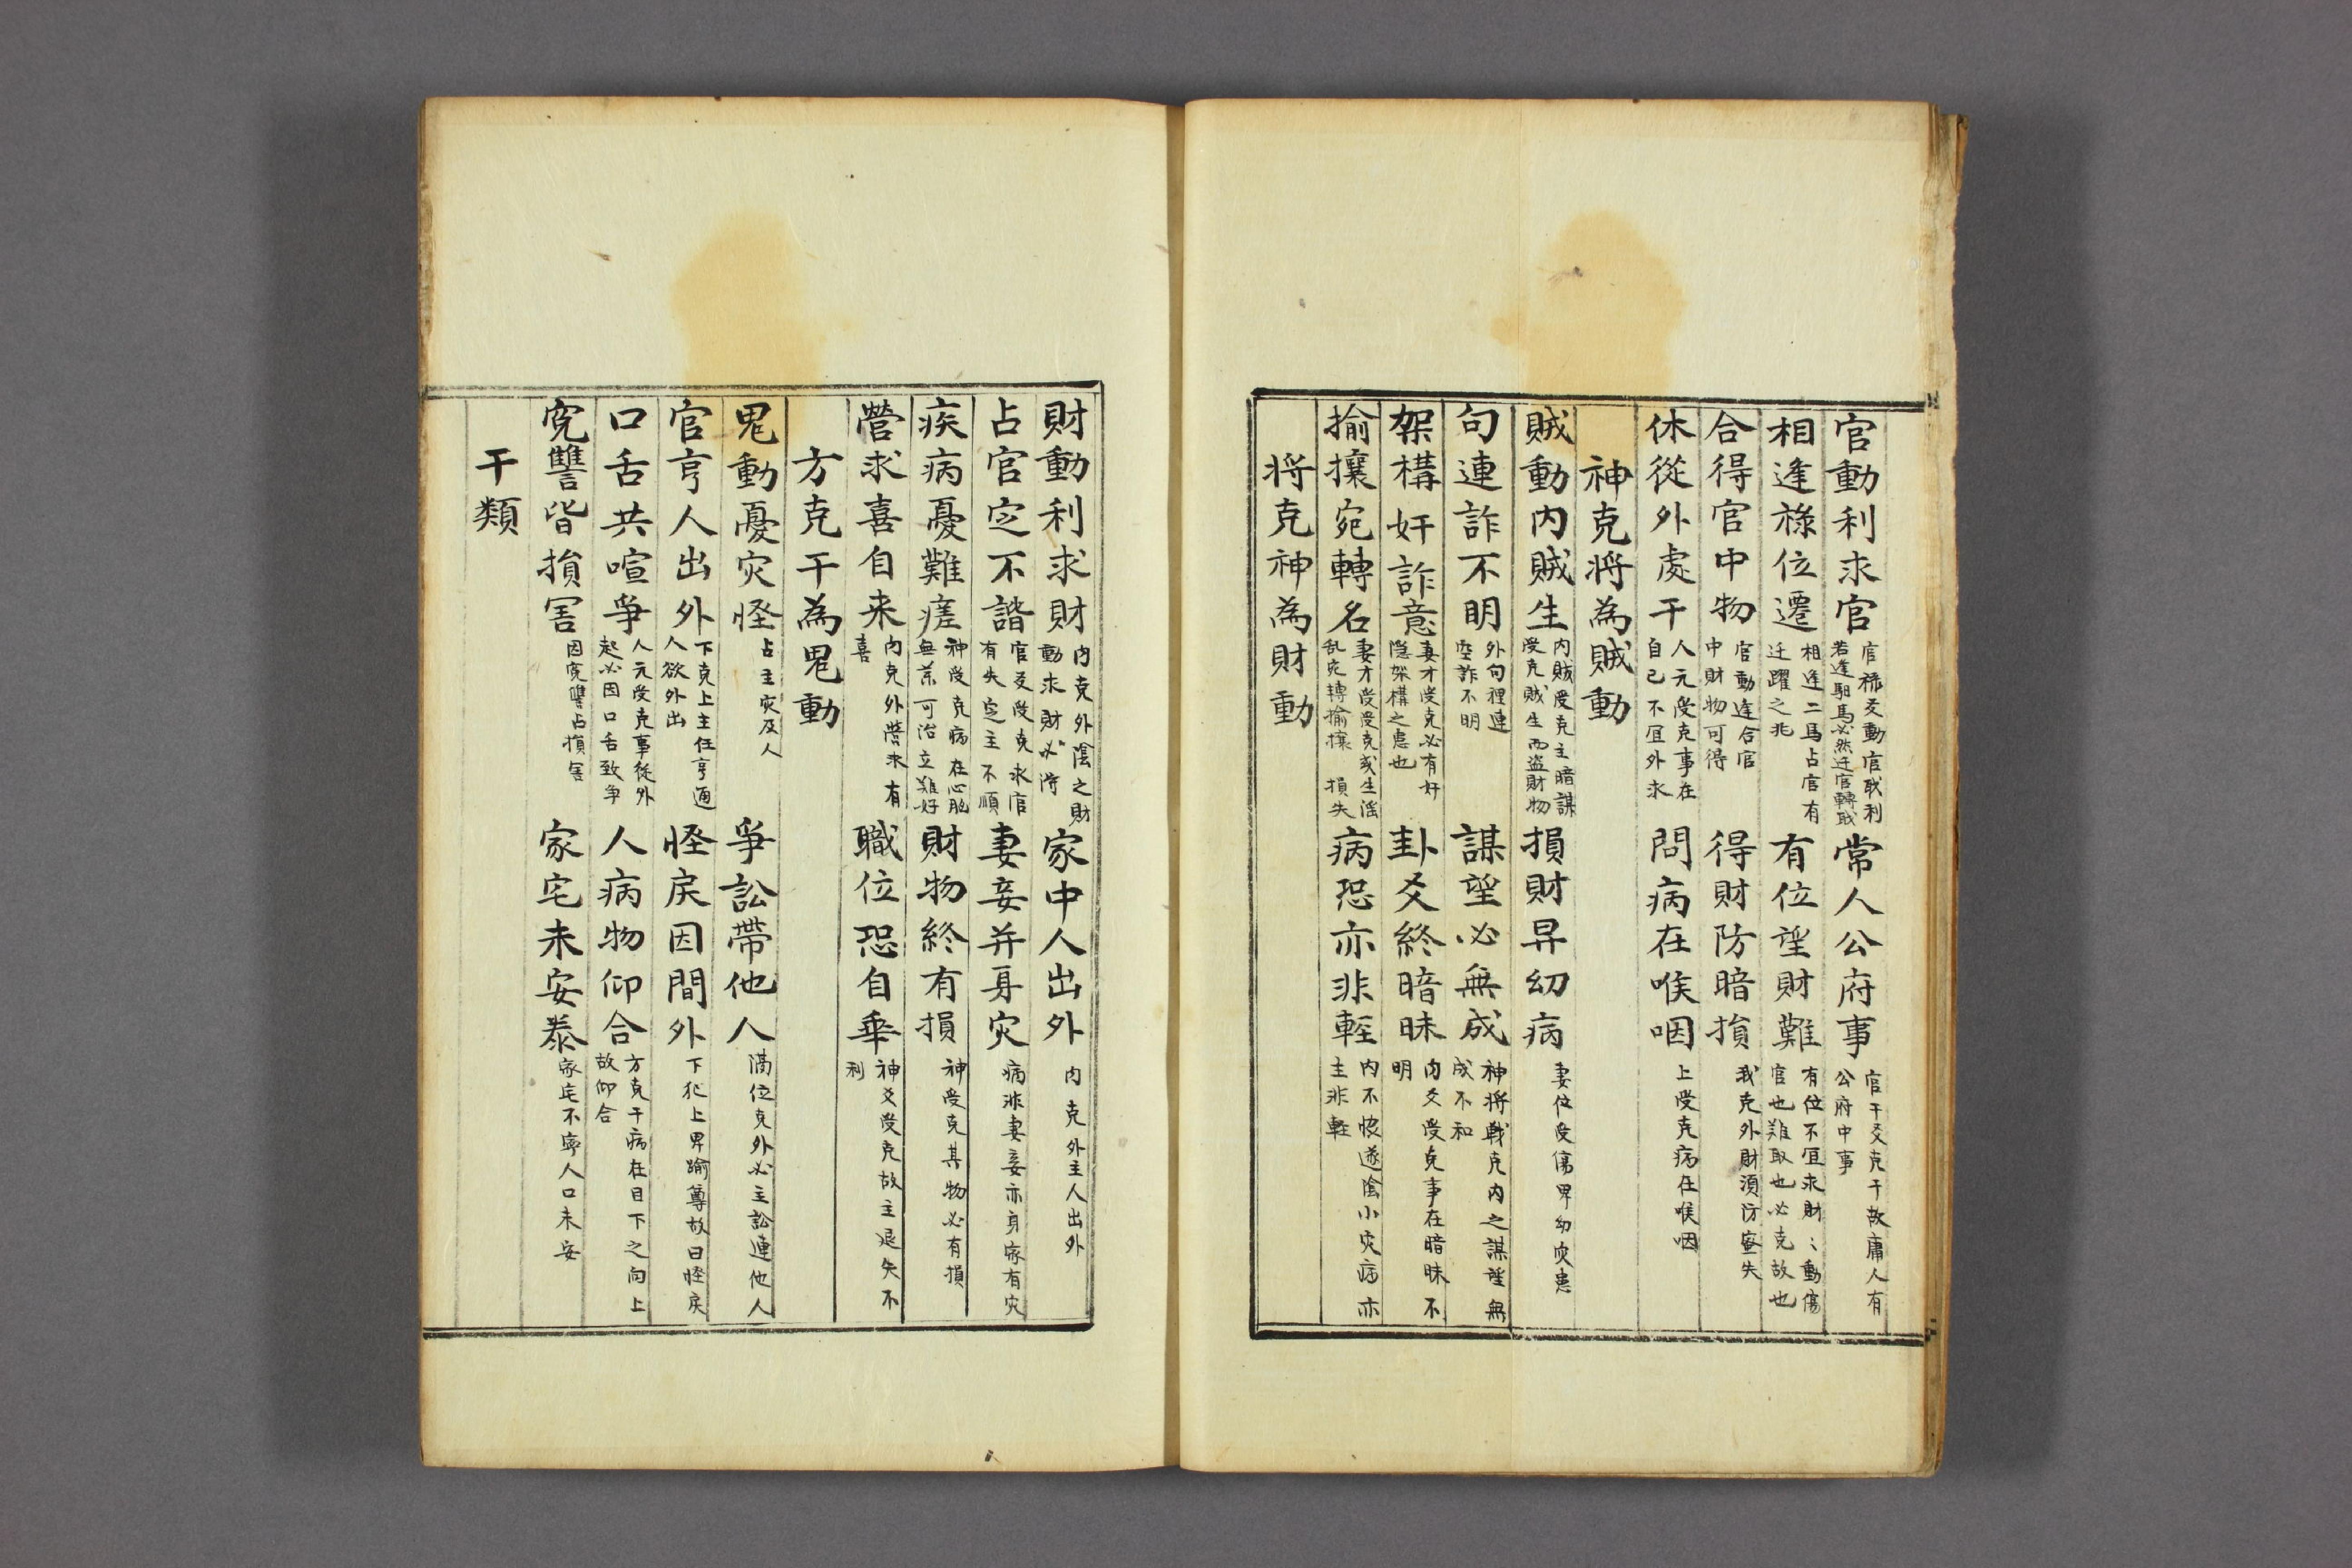 官動利求官官祿爻動官職利若逢馹馬必然迁官轉職常人公府事官干爻克干故庸人有公府中事
相逢祿位遷相逢二馬占官有迁躍之兆有位望財難有位不宜求財〻動傷官也難取也必克故也
合得官中物官動逢合官中財物可得得財防暗損我克外財須防蜜失
休從外處干人元受克事在自己不宜外求問病在喉咽上受克病在喉咽
神克將為賊動
賊動内賊生内賊受克主暗謀受克賊生而盜財物損財昇幼病妻位受傷卑幼灾患
句連詐不明外句裡連空詐不明謀望必無成神將戰克内之謀望無成不和
架構奸詐意妻才受克必有奸隐架構之患也卦爻終暗昧内爻受克事在暗昧不明
揄攘宛轉名妻才受受克或生滛乱宛轉揄攘損失病恐亦非輕内不懷遂陰小灾病亦主非輕
將克神為財動
財動利求財内克外陰之財動求財必淂家中人出外内克外主人出外
占官定不諧官爻受克求官有失定主不順妻妾并身灾病非妻妾亦身家有灾
疾病憂難瘥神受克病在心胸無藥可治立難好財物終有損神受克其物必有損
營求喜自来内克外營求有喜職位恐自乖神爻受克故主退失不利
方克干為鬼動
鬼動憂灾怪占主灾及人爭訟帶他人滿位克外必主訟連他人
官亨人出外下克上主任亨通人欲外出怪戾因間外下犯上卑踰尊故曰怪戾
口舌共喧爭人元受克事從外起必因口舌致争人病物仰合方克干病在目下之向上故仰合
寃讐皆損害因寃讐占損害家宅未安泰家宅不寧人口未安
干類